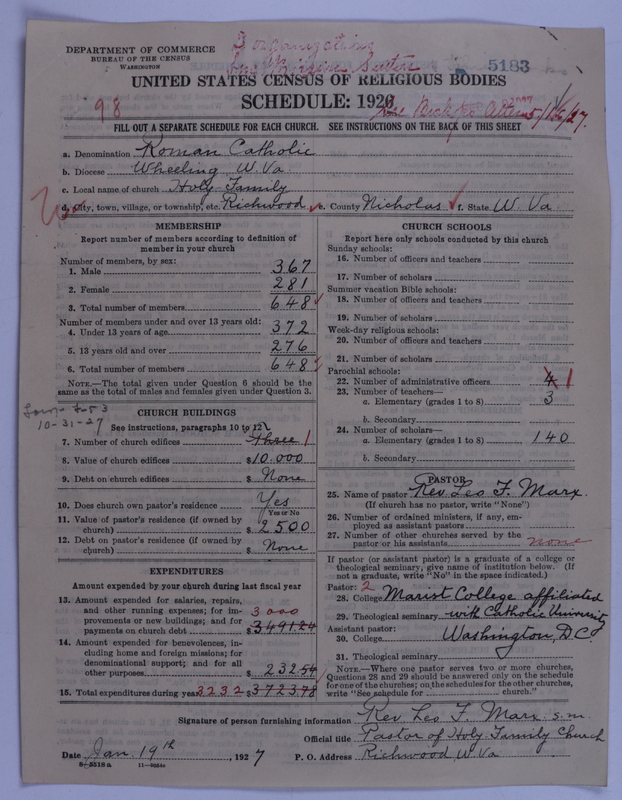 DEPARTMENT OF COMMERCE
BUREAU OF THE CENSUS
WASHINGTON
3 organizations
5183
UNITED STATES CENSUS OF RELIGIOUS BODIES
SCHEDULE: 1926
98
5/16/27.
FILL OUT A SEPARATE SCHEDULE FOR EACH CHURCH. SEE INSTRUCTIONS ON THE BACK OF THIS SHEET
a. Denomination Roman Catholic
b. Diocese Wheeling W. Va
c. Local name of church Holy Family
d. City, town, village, or township, etc. Richwood e. County Nicholas f. State W. Va
MEMBERSHIP
Report number of members according to definition of
member in your church
Number of members, by sex:
1. Male 367
2. Female 281
3. Total number of members 648
Number of members under and over 13 years old:
4. Under 13 years of age 372
5. 13 years old and over 276
6. Total number of members 648
NOTE.—The total given under Question 6 should be the
same as the total of males and females given under Question 3.
10-31-27
CHURCH BUILDINGS
See instructions, paragraphs 10 to 12
7. Number of church edifices Three 1
8. Value of church edifices $10.000
9. Debt on church edifices $ None
10. Does church own pastor's residence Yes
Yes or No
11. Value of pastor's residence (if owned by
church) $2500
12. Debt on pastor's residence (if owned by
church) $ None
EXPENDITURES
Amount expended by your church during last fiscal year
13. Amount expended for salaries, repairs,
and other running expenses; for im-
provements or new buildings; and for
payments on church debt 3000 $349124
14. Amount expended for benevolences, in-
cluding home and foreign missions; for
denominational support; and for all
other purposes $23254
15. Total expenditures during year 3232 $372378
CHURCH SCHOOLS
Report here only schools conducted by this church
Sunday schools:
16. Number of officers and teachers
17. Number of scholars
Summer vacation Bible schools:
18. Number of officers and teachers
19. Number of scholars
Week-day religious schools:
20. Number of officers and teachers
21. Number of scholars
Parochial schools:
22. Number of administrative officers 4 1
23. Number of teachers—
a. Elementary (grades 1 to 8) 3
b. Secondary
24. Number of scholars—
a. Elementary (grades 1 to 8) 140
b. Secondary
PASTOR
25. Name of pastor Rev. Leo F. Marx.
(If church has no pastor, write "None")
26. Number of ordained ministers, if any, em-
ployed as assistant pastors
27. Number of other churches served by the
pastor or his assistants none
If pastor (or assistant pastor) is a graduate of a college or
theological seminary, give name of institution below. (If
not a graduate, write "No" in the space indicated.)
Pastor: 2
28. College Marist College affiliated
29. Theological seminary with Catholic University
Assistant pastor:
30. College Washington, D.C.
31. Theological seminary
NOTE.—Where one pastor serves two or more churches,
Questions 28 and 29 should be answered only on the schedule
for one of the churches; on the schedules for the other churches,
write "See schedule for church."
Signature of person furnishing information Rev. Leo F. Marx. s.m.
Official title Pastor of Holy Family Church
Date Jan. 19th, 1927 P. O. Address Richwood W. Va
8-5518a 11-9664a